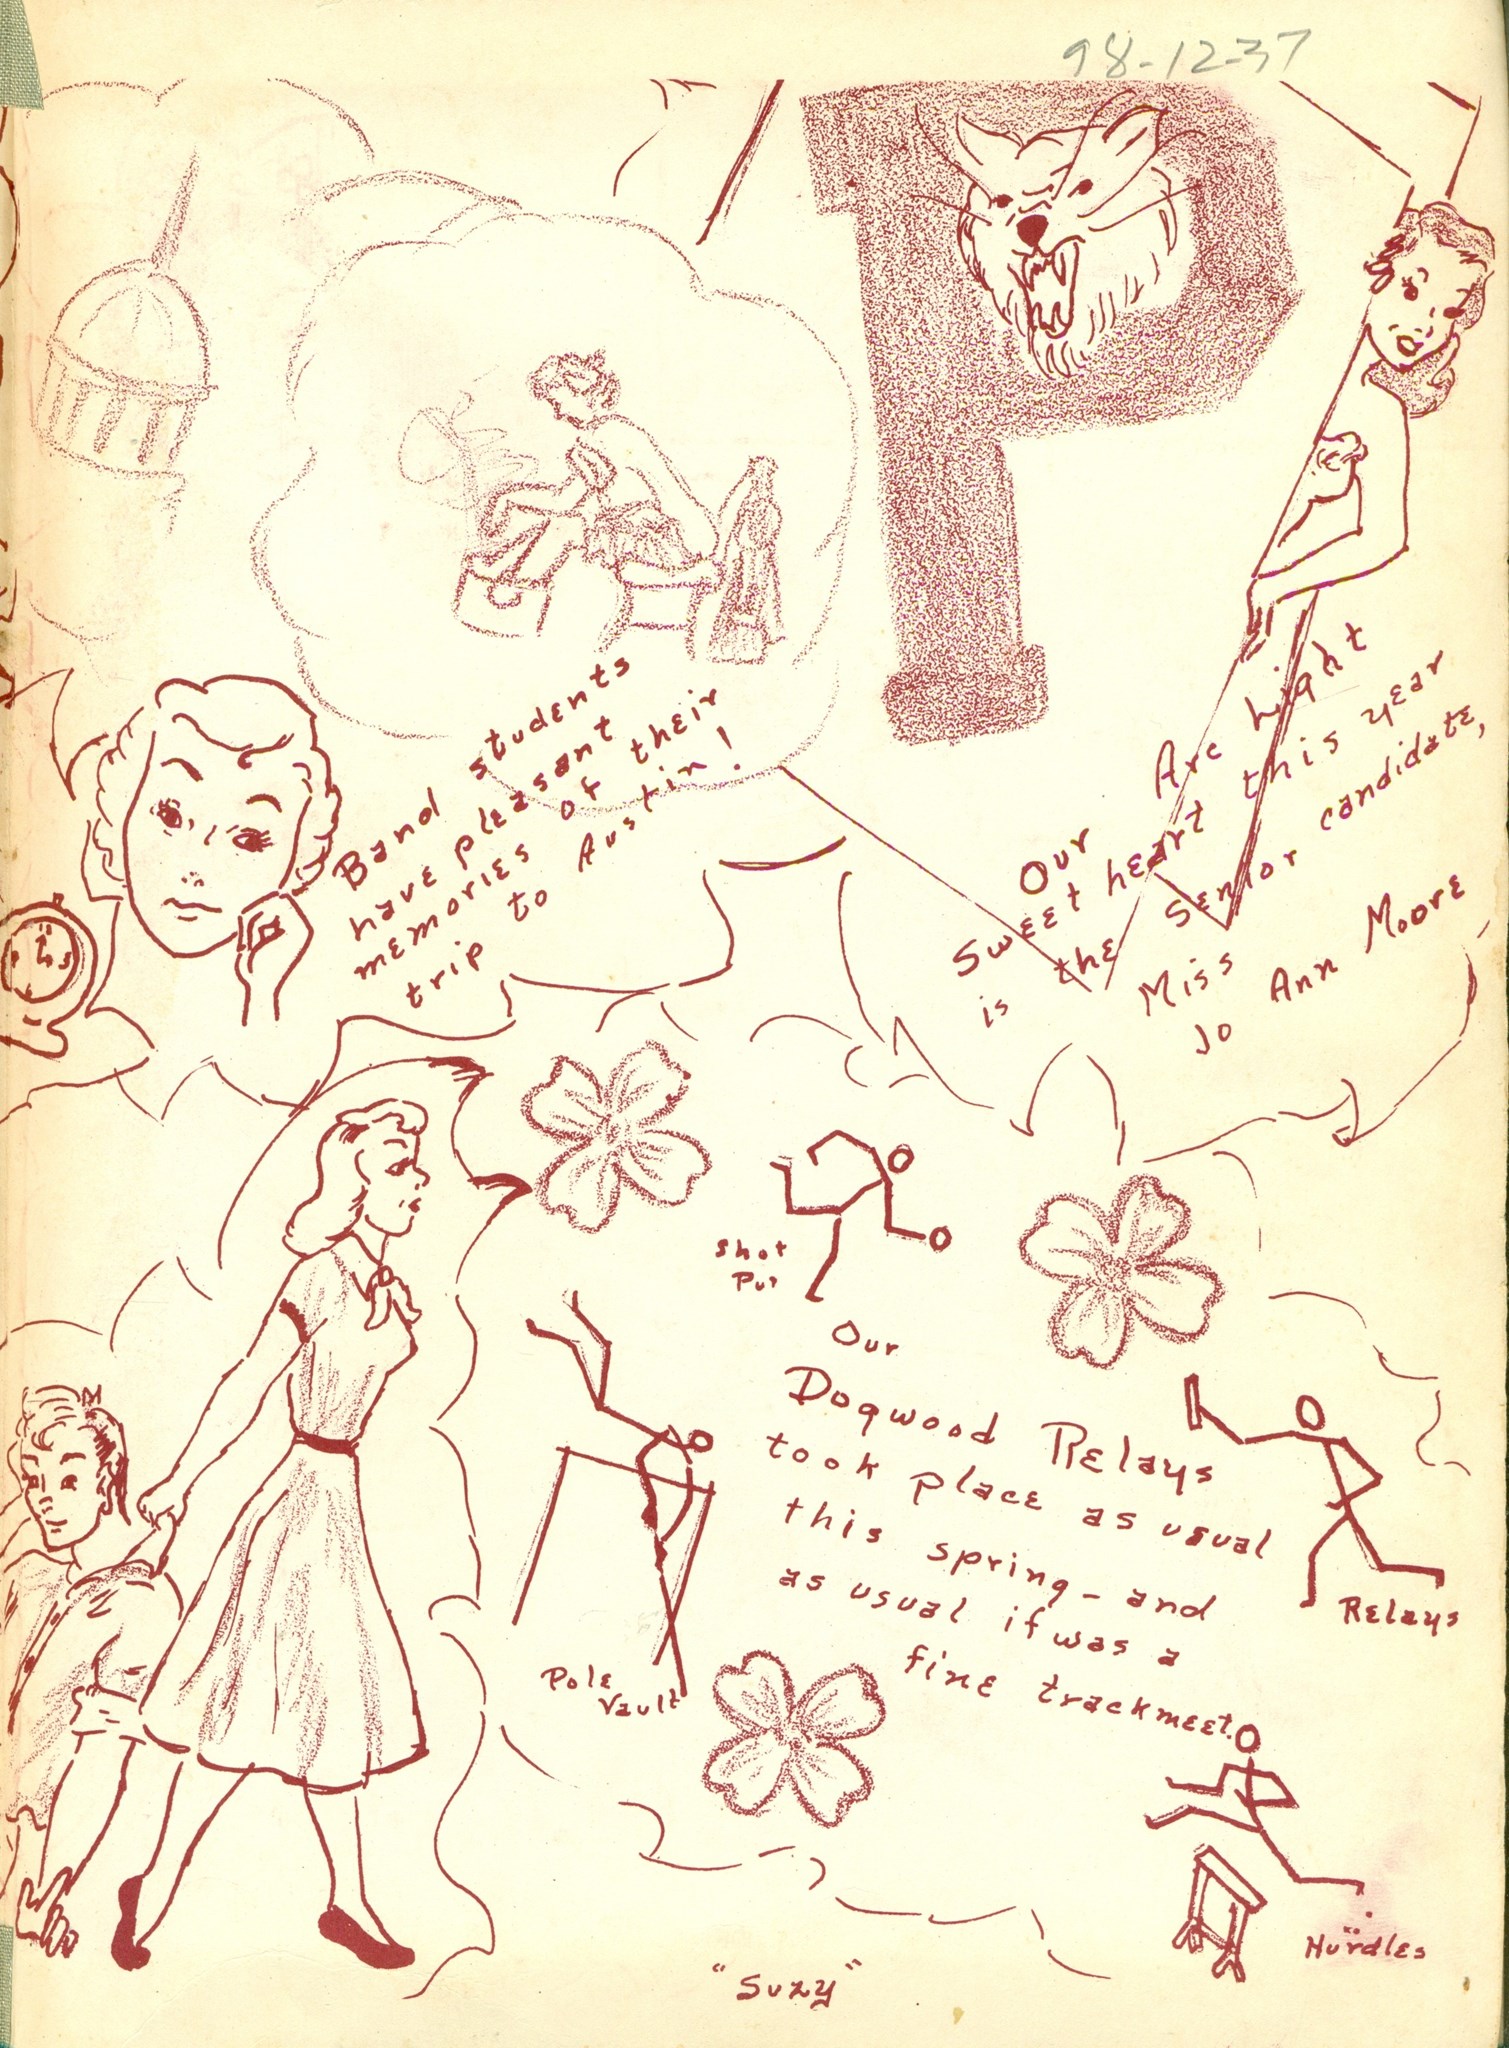 98-12-37
P
Band students
have pleasant
memories of their
trip to Austin!
Arc Light
Our
Sweet heart this year
is the Senior candidate,
Miss
Jo Ann Moore
Shot
Put
Our
Dogwood Relays
took place as usual
this spring - and
as usual it was a
fine trackmeet.
Relays
Pole
Vault
Hurdles
"Suzy"